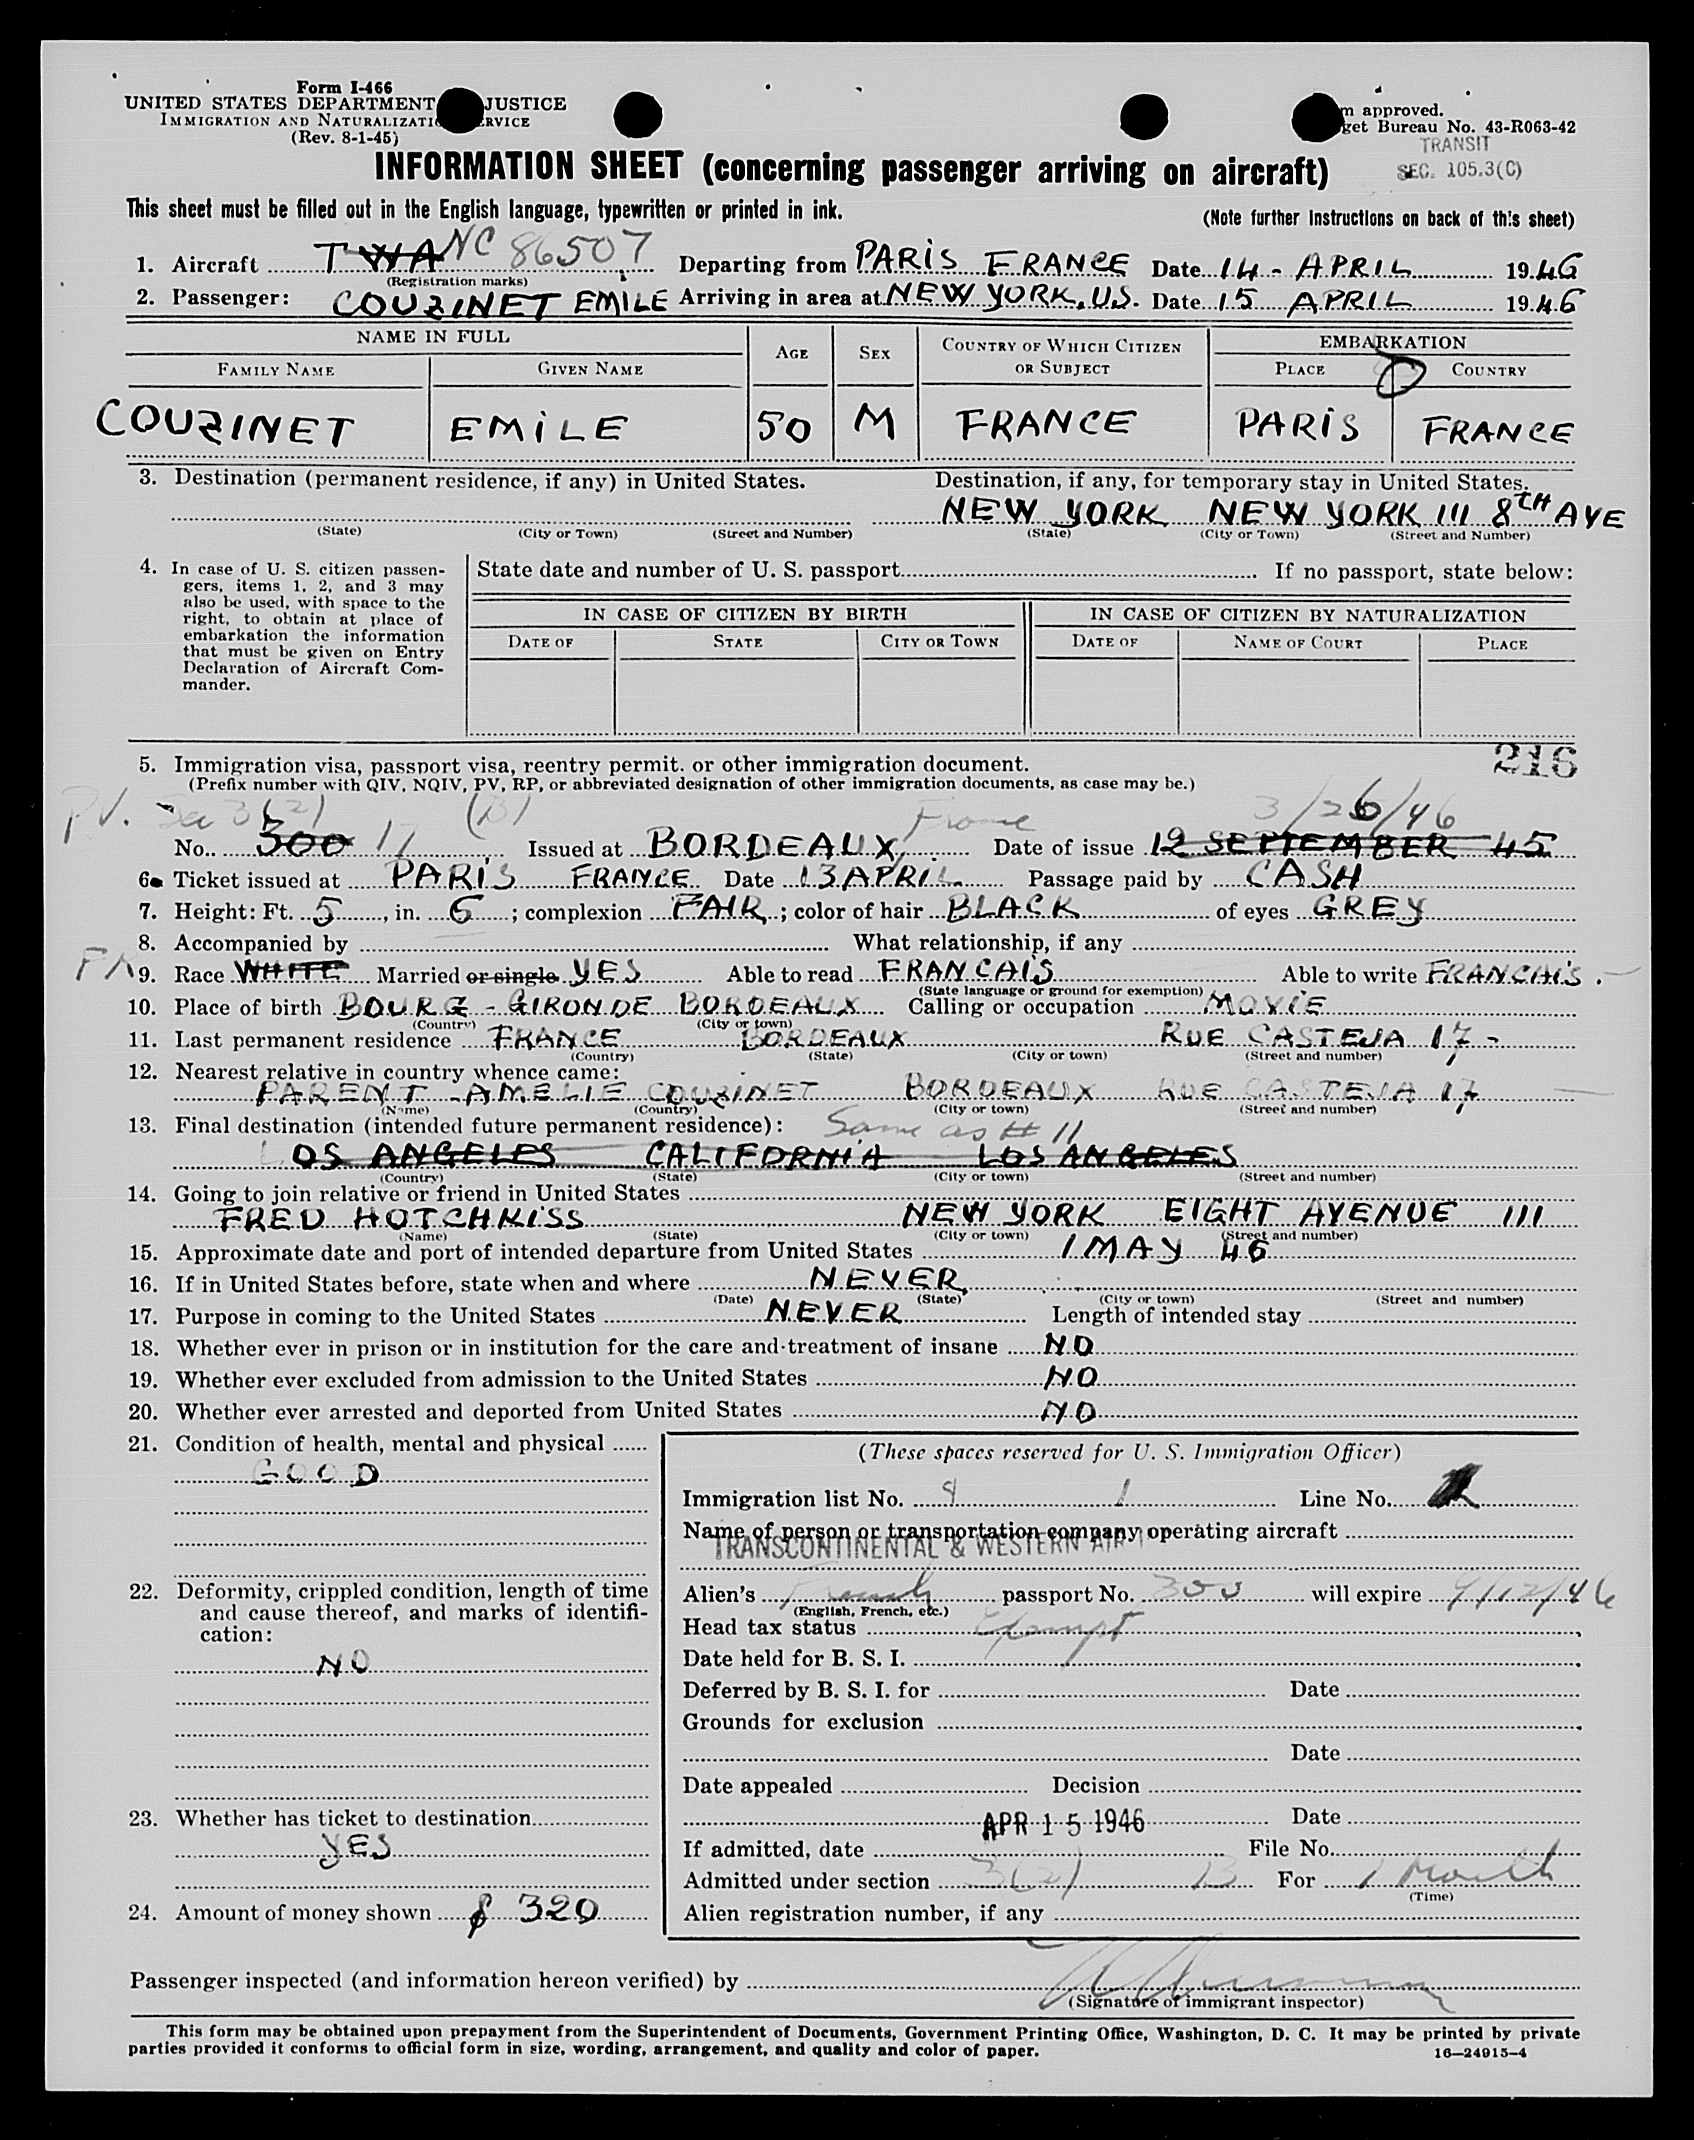 Form I-466
UNITED STATES DEPARTMENT JUSTICE
IMMIGRATION AND NATURALIZATI RVICE
(Rev. 8-1-45)
m approved.
get Bureau No. 43-R063-42
TRANSIT
SEC. 105.3(C)
INFORMATION SHEET (concerning passenger arriving on aircraft)
This sheet must be filled out in the English language, typewritten or printed in ink.
(Note further instructions on back of this sheet)
1. Aircraft TWA NC 86507 Departing from PARIS FRANCE Date 14 - APRIL 1946
(Registration marks)
2. Passenger: COUZINET EMILE Arriving in area at NEW YORK. U.S. Date 15 APRIL 1946
NAME IN FULL AGE SEX COUNTRY OF WHICH CITIZEN OR SUBJECT EMBARKATION
FAMILY NAME GIVEN NAME PLACE COUNTRY
COUZINET EMILE 50 M FRANCE PARIS FRANCE
3. Destination (permanent residence, if any) in United States. Destination, if any, for temporary stay in United States.
NEW YORK NEW YORK 111 8TH AVE
(State) (City or Town) (Street and Number) (State) (City or Town) (Street and Number)
4. In case of U. S. citizen passen-
gers, items 1, 2, and 3 may
also be used, with space to the
right, to obtain at place of
embarkation the information
that must be given on Entry
Declaration of Aircraft Com-
mander.
State date and number of U. S. passport If no passport, state below:
IN CASE OF CITIZEN BY BIRTH IN CASE OF CITIZEN BY NATURALIZATION
DATE OF STATE CITY OR TOWN DATE OF NAME OF COURT PLACE
216
5. Immigration visa, passport visa, reentry permit, or other immigration document.
(Prefix number with QIV, NQIV, PV, RP, or abbreviated designation of other immigration documents, as case may be.)
PV. Sec 3(2) (B) France 3/26/46
No. 300 17 Issued at BORDEAUX, Date of issue 12 SEPTEMBER 45
6. Ticket issued at PARIS FRANCE Date 13 APRIL Passage paid by CASH
7. Height: Ft. 5, in. 6; complexion FAIR; color of hair BLACK of eyes GREY
8. Accompanied by What relationship, if any
9. Race WHITE Married or single YES Able to read FRANCAIS Able to write FRANCAIS.
(State language or ground for exemption)
10. Place of birth BOURG - GIRONDE BORDEAUX Calling or occupation MOVIE
(Country) (City or town)
11. Last permanent residence FRANCE BORDEAUX RUE CASTEJA 17 -
(Country) (State) (City or town) (Street and number)
12. Nearest relative in country whence came:
PARENT - AMELIE COUZINET BORDEAUX RUE CASTEJA 17
(Name) (Country) (City or town) (Street and number)
13. Final destination (intended future permanent residence): Same as # 11
LOS ANGELES CALIFORNIA LOS ANGELES
(Country) (State) (City or town) (Street and number)
14. Going to join relative or friend in United States
FRED HOTCHKISS NEW YORK EIGHT AVENUE 111
(Name) (State) (City or town) (Street and number)
15. Approximate date and port of intended departure from United States 1 MAY 46
16. If in United States before, state when and where NEVER
(Date) (State) (City or town) (Street and number)
17. Purpose in coming to the United States NEVER Length of intended stay
18. Whether ever in prison or in institution for the care and treatment of insane NO
19. Whether ever excluded from admission to the United States NO
20. Whether ever arrested and deported from United States NO
21. Condition of health, mental and physical
GOOD
22. Deformity, crippled condition, length of time
and cause thereof, and marks of identifi-
cation:
NO
23. Whether has ticket to destination
YES
24. Amount of money shown $ 320
(These spaces reserved for U. S. Immigration Officer)
Immigration list No. 9 1 Line No.
Name of person or transportation company operating aircraft
TRANSCONTINENTAL & WESTERN AIR
Alien's French passport No. 300 will expire 9/12/46
(English, French, etc.)
Head tax status Exempt
Date held for B. S. I.
Deferred by B. S. I. for Date
Grounds for exclusion
Date
Date appealed Decision
APR 15 1946 Date
If admitted, date File No.
Admitted under section 3(2) B For 1 Month
(Time)
Alien registration number, if any
Passenger inspected (and information hereon verified) by
(Signature of immigrant inspector)
This form may be obtained upon prepayment from the Superintendent of Documents, Government Printing Office, Washington, D. C. It may be printed by private
parties provided it conforms to official form in size, wording, arrangement, and quality and color of paper.
16—24915-4